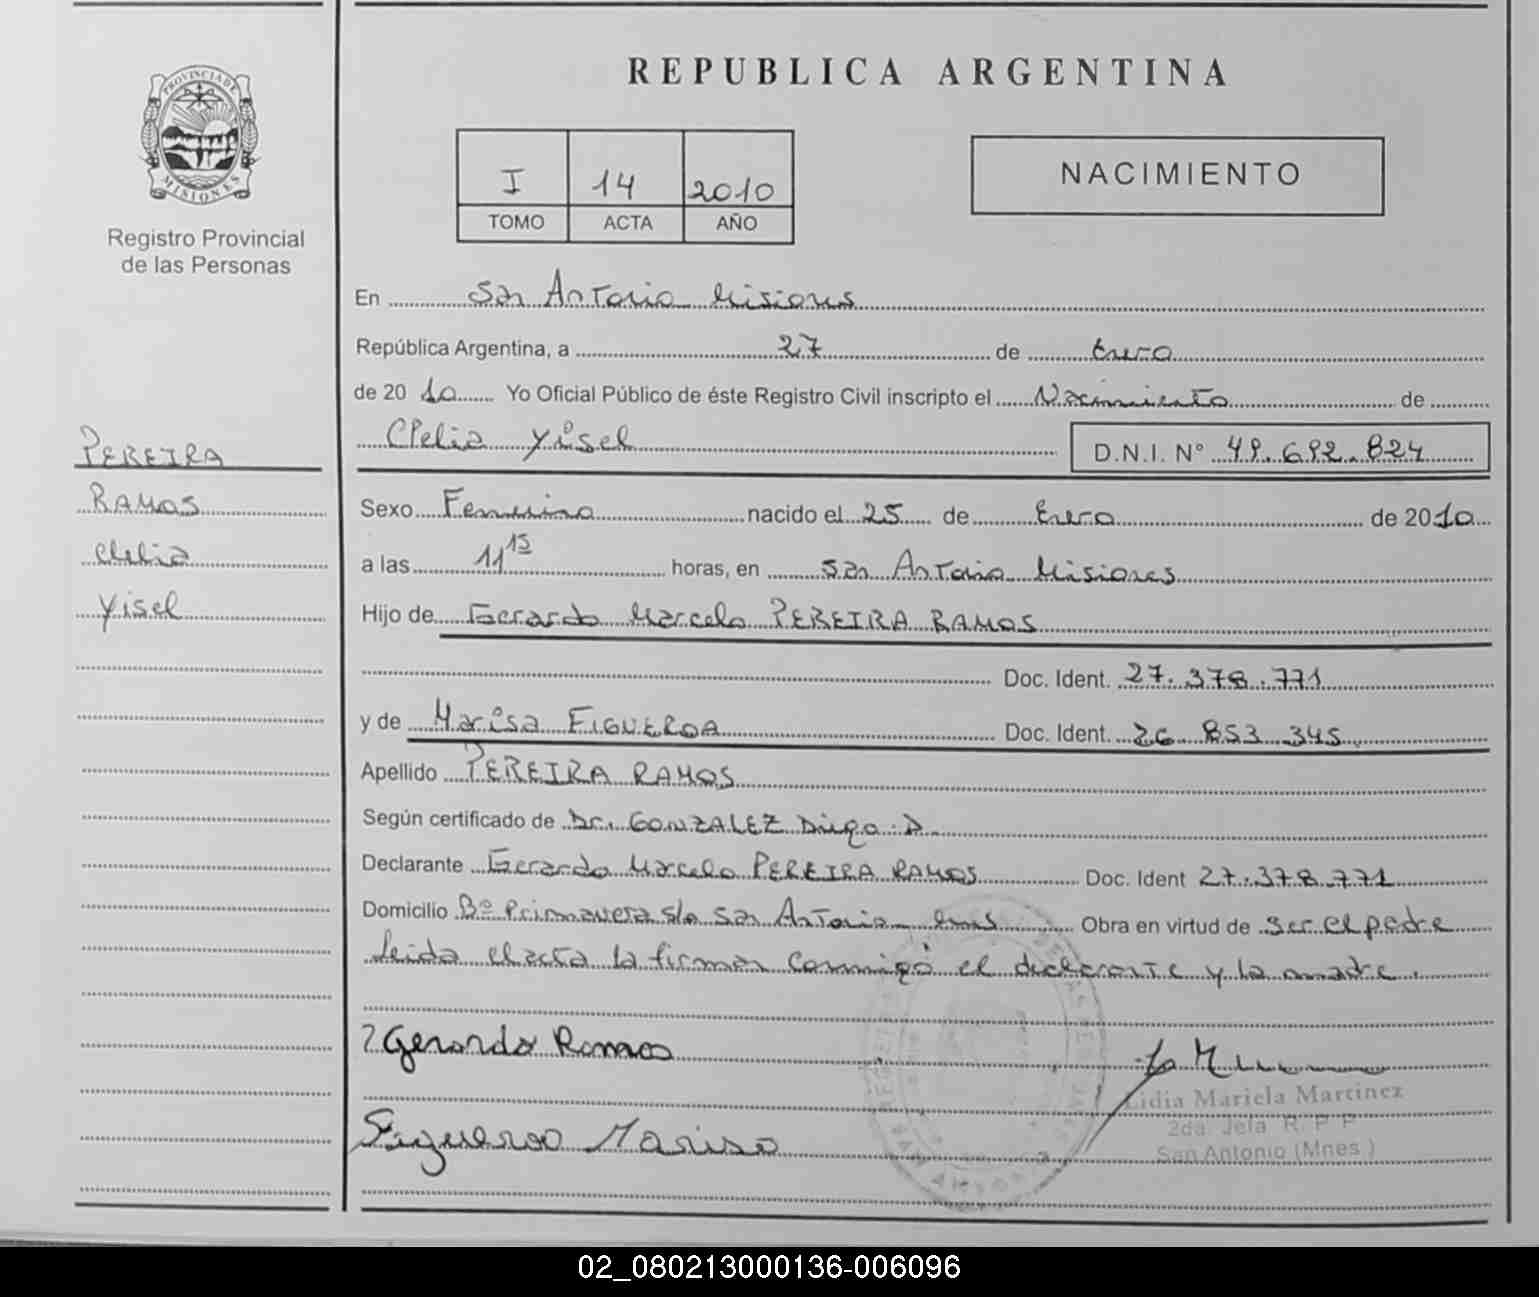 PROVINCIA DE
MISIONES
Registro Provincial
de las Personas
PEREIRA
RAMOS
Clelia
Yisel
REPUBLICA ARGENTINA
I 14 2010
TOMO ACTA AÑO
NACIMIENTO
En San Antonio Misiones
República Argentina, a 27 de Enero
de 20 10 Yo Oficial Público de éste Registro Civil inscripto el Nacimiento de
Clelia Yisel D.N.I. N° 49.692.824
Sexo Femenino nacido el 25 de Enero de 2010
a las 11 15 horas, en San Antonio Misiones
Hijo de Gerardo Marcelo PEREIRA RAMOS
Doc. Ident. 27.378.771
y de Marisa FIGUEROA Doc. Ident. 26 853 345
Apellido PEREIRA RAMOS
Según certificado de Dr. GONZALEZ Diego D.
Declarante Gerardo Marcelo PEREIRA RAMOS Doc. Ident 27.378.771
Domicilio Bº Primavera s/n San Antonio Mnes Obra en virtud de ser el padre
leida el acta la firman conmigo el declarante y la madre.
Gerardo Ramos
Lidia Mariela Martinez
2da. Jefa R. P. P
Figueroa Marisa
San Antonio (Mnes.)
02_080213000136-006096